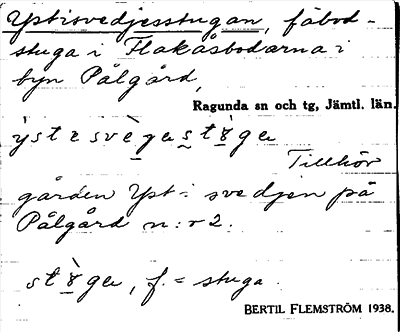 Yst i svedjesstugan, fäbod-
stuga i Flakåsbodarna i
byn Pålgård,
Ragunda sn och tg, Jämtl. län.
Tillhör
gården Yst-i-svedjen på
Pålgård n:r 2.
f. = stuga.
BERTIL FLEMSTRÖM 1938.